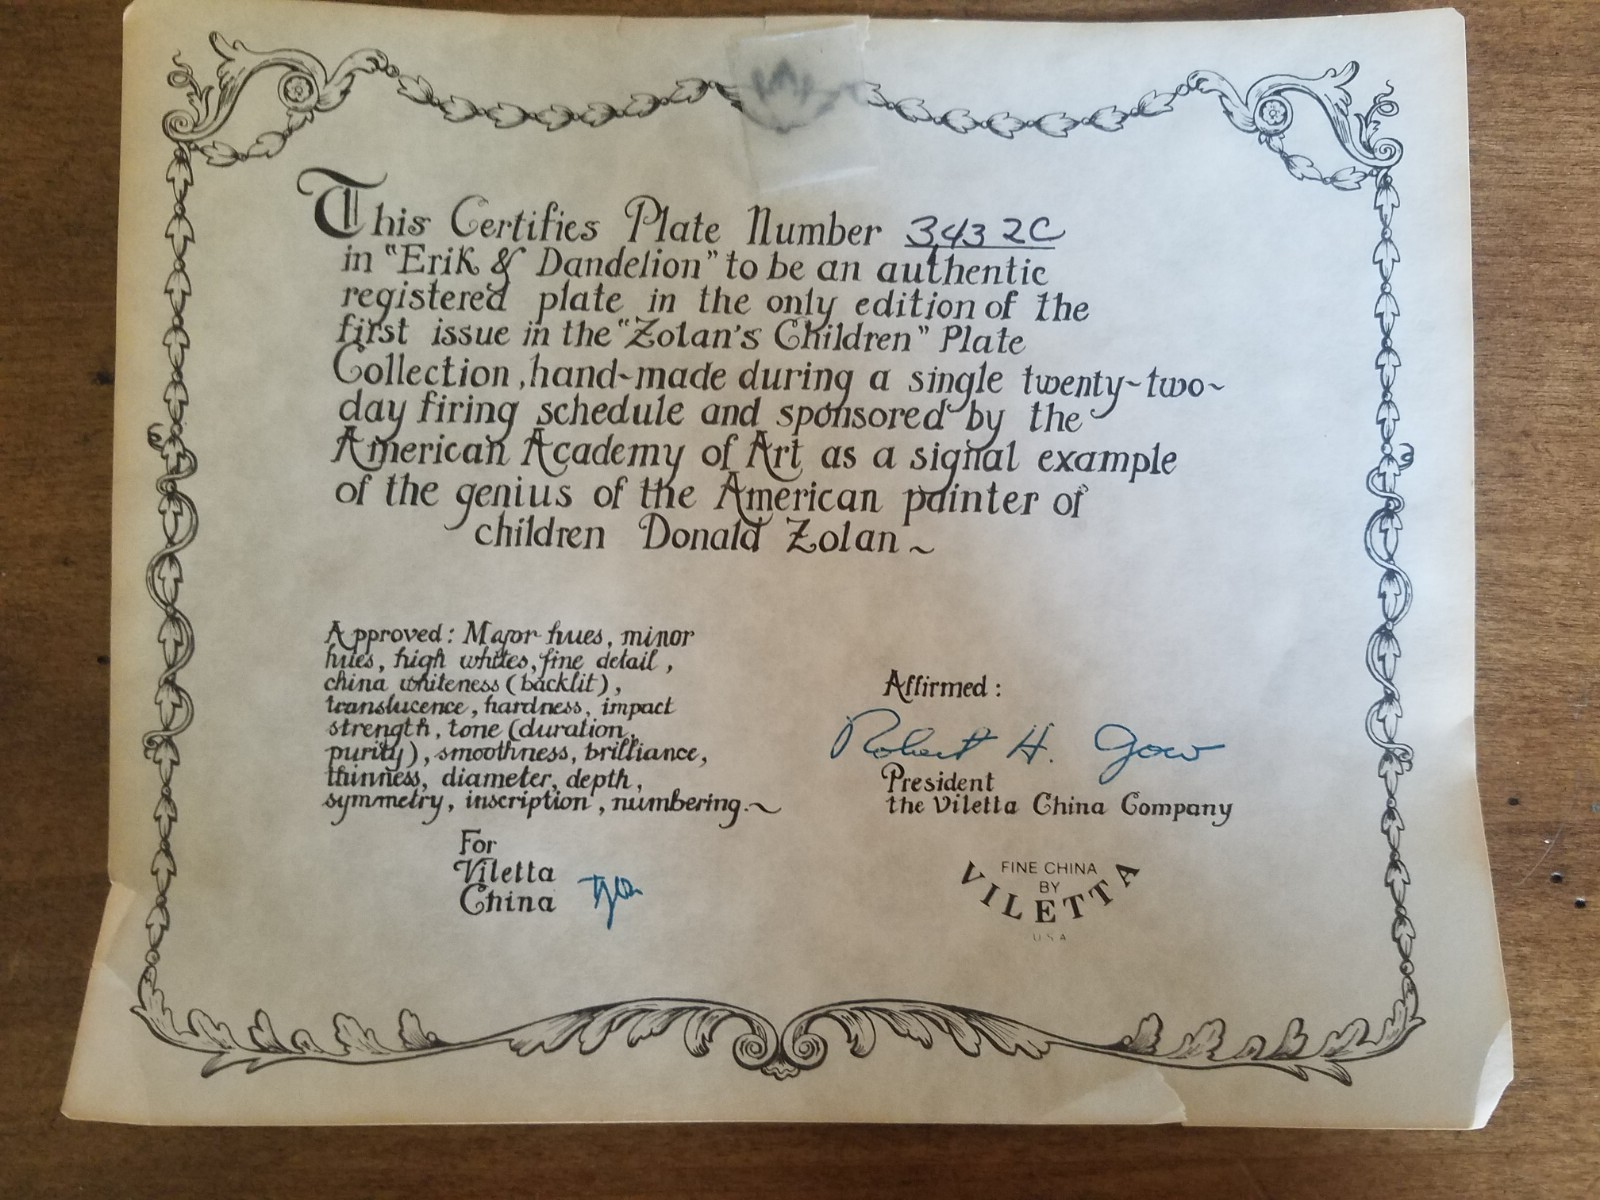 This Certifies Plate Number 3,432C
in "Erik & Dandelion" to be an authentic
registered plate in the only edition of the
first issue in the "Zolan's Children" Plate
Collection, hand~made during a single twenty~two~
day firing schedule and sponsored by the
American Academy of Art as a signal example
of the genius of the American painter of
children Donald Zolan~
Approved: Major hues, minor
hues, high whites, fine detail,
china whiteness (backlit),
translucence, hardness, impact
strength, tone (duration,
purity), smoothness, brilliance,
thinness, diameter, depth,
symmetry, inscription, numbering.~
For
Viletta
China
Affirmed:
Robert H. Gow
President
the Viletta China Company
FINE CHINA
BY
VILETTA
USA